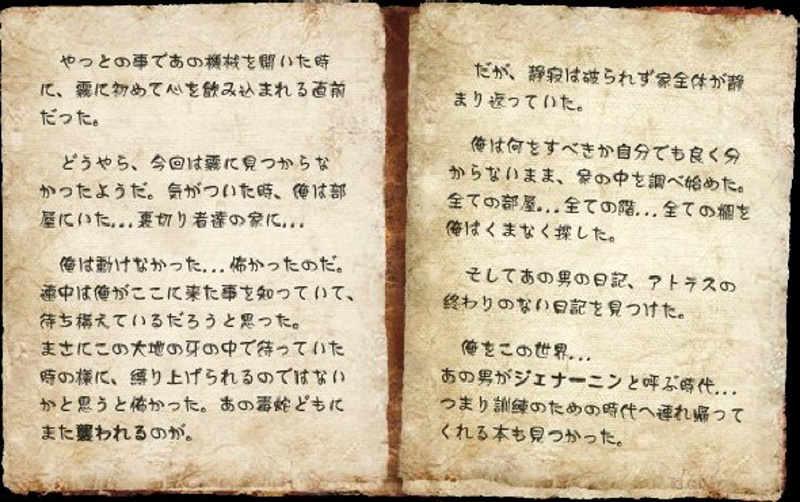 やっとの事であの機械を開いた時
に、霧に初めて心を飲み込まれる直前
だった。
どうやら、今回は霧に見つからな
かったようだ。気がついた時、俺は部
屋にいた...裏切り者達の家に...
俺は動けなかった...怖かったのだ。
連中は俺がここに来た事を知っていて、
待ち構えているだろうと思った。
まさにこの大地の牙の中で待っていた
時の様に、縛り上げられるのではない
かと思うと怖かった。あの毒蛇どもに
また襲われるのが。
だが、静寂は破られず家全体が静
まり返っていた。
俺は何をすべきか自分でも良く分
からないまま、家の中を調べ始めた。
全ての部屋...全ての階...全ての棚を
俺はくまなく探した。
そしてあの男の日記、アトラスの
終わりのない日記を見つけた。
俺をこの世界...
あの男がジェナーニンと呼ぶ時代...
つまり訓練のための時代へ連れ帰って
くれる本も見つかった。